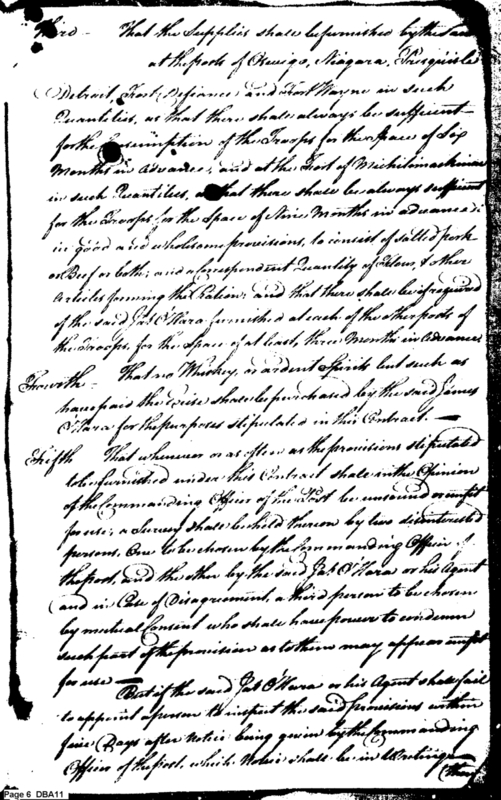 Third - That the Supplies shall be furnished by the said
at the posts of Oswego, Niagara, Presquisle
Detroit, Fort Defiance and Fort Wayne in such
Quantities, as that there shall always be sufficient
for the Consumption of the Troops for the Space of Six
Months in Advance, and at the Post of Michilimackinac
in such Quantities, as that there shall be always sufficient
for the Troops for the Space of Nine Months in advance;
in good and wholesome provisions, to consist of salted pork
or Beef or both; and a correspondent Quantity of flour, & other
Articles forming the Ration; and that there shall be if required
of the said Jas. O'Hara furnished at each of the other posts of
the Troops, for the Space of at least, three Months in Advance
Fourth - That no Whiskey, or ardent Spirits but such as
have paid the Excise shall be purchased by the said James
O'Hara for the purposes stipulated in this Contract. -
Fifth That whenever or as often as the provisions stipulated
to be furnished under this Contract shall in the Opinion
of the Commanding Officer of the Post be unsound or unfit
for use; a Survey shall be held thereon by two disinterested
persons. One to be chosen by the Commanding Officer of
the post, and the other by the said Jas. O'Hara or his Agent
and in Case of Disagreement, a third person to be chosen
by mutual Consent who shall have power to condemn
such part of the provision as to them may appear unfit
for use -
But if the said Jas. O'Hara or his Agent shall fail
to appoint a person to inspect the said provisions within
five Days after Notice being given by the Commanding
Officer of the post, which Notice shall be in Writing
then
Page 6 DBA11